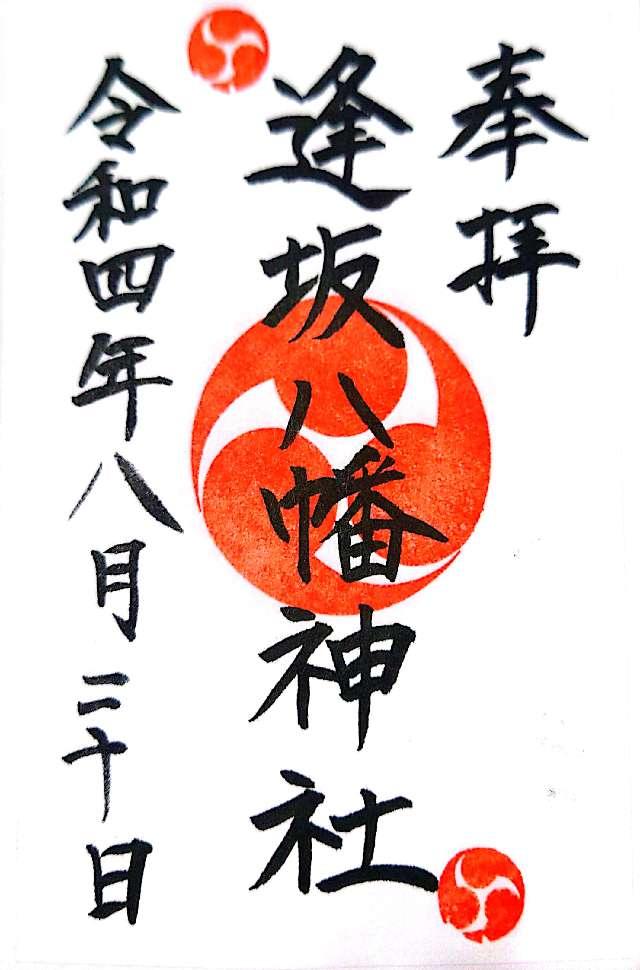 奉拝
逢坂八幡神社
令和四年八月二十日